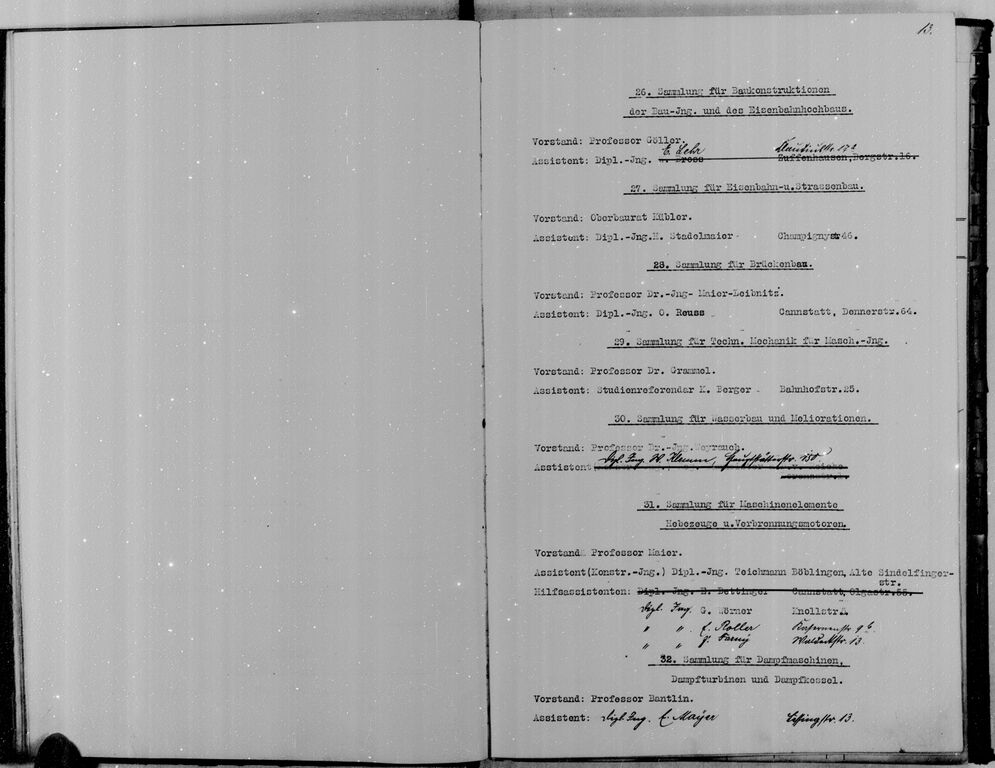 13.
26. Sammlung für Baukonstruktionen
der Bau-Jng. und des Eisenbahnhochbaus.
Vorstand: Professor Göller.
E. Lehr
Assistent: Dipl.-Jng. Zuffenhausen,Bergstr.16.
27. Sammlung für Eisenbahn-u.Strassenbau.
Vorstand: Oberbaurat Kübler.
Assistent: Dipl.-Jng.H. Stadelmaier Champignystr46.
28. Sammlung für Brückenbau.
Vorstand: Professor Dr.-Jng- Maier-Leibnitz.
Assistent: Dipl.-Jng. O. Reuss Cannstatt, Dennerstr.64.
29. Sammlung für Techn. Mechanik für Masch.-Jng.
Vorstand: Professor Dr. Grammel.
Assistent: Studienreferendar K. Berger Bahnhofstr.25.
30. Sammlung für Wasserbau und Meliorationen.
Vorstand: Professor Dr.-Jng.Weyrauch.
Dipl. Ing. W. Klemm, Hauptstätterstr.
Asstistent
31. Sammlung für Maschinenelemente
Hebezeuge u.Verbrennungsmotoren.
Vorstand Professor Maier.
Assistent(Konstr.-Jng.) Dipl.-Jng. Teichmann Böblingen, Alte Sindelfinger-
str.
Hilfsassistenten: Dipl. Jng. E. Dettinger Cannstatt, Olgastr.58.
Dipl. Ing. G. Wörner Knollstr.
" " E. Roller Kasernenstr
" " Waldeckstr. 13.
32. Sammlung für Dampfmaschinen,
Dampfturbinen und Dampfkessel.
Vorstand: Professor Bantlin.
Assistent: Dipl. Ing. E. Mayer 13.